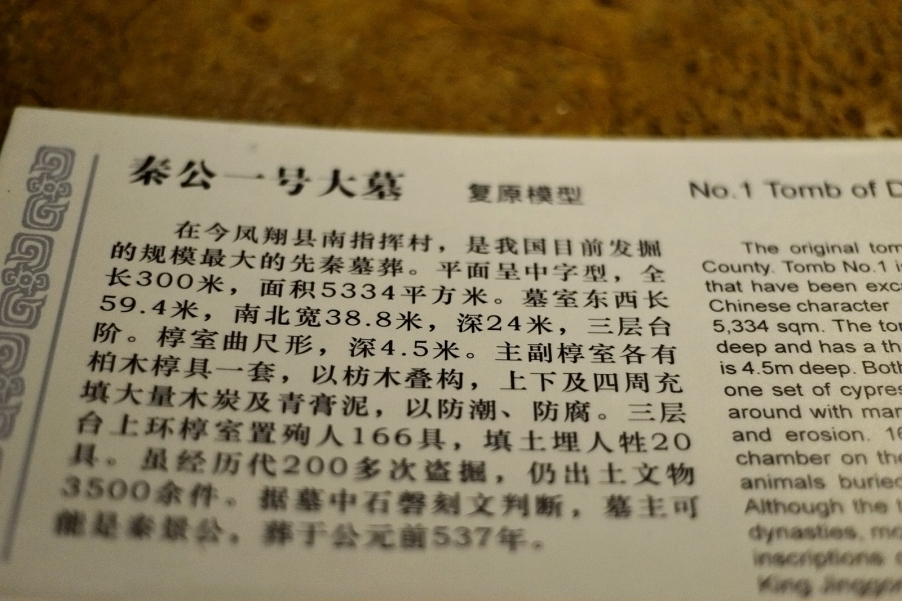 秦公一号大墓 复原模型
在今凤翔县南指挥村，是我国目前发掘
的规模最大的先秦墓葬。平面呈中字型，全
长300米，面积5334平方米。墓室东西长
59.4米，南北宽38.8米，深24米，三层台
阶。椁室曲尺形，深4.5米。主副椁室各有
柏木椁具一套，以枋木叠构，上下及四周充
填大量木炭及青膏泥，以防潮、防腐。三层
台上环椁室置殉人166具，填土埋人牲20
具。虽经历代200多次盗掘，仍出土文物
3500余件。据墓中石磬刻文判断，墓主可
能是秦景公，葬于公元前537年。
No.1 Tomb of D
The original tom
County. Tomb No.1 is
that have been exca
Chinese character
5,334 sqm. The to
deep and has a th
is 4.5m deep. Both
one set of cypres
around with mar
and erosion. 16
chamber on the
animals buried
Although the t
dynasties, mo
inscriptions o
King Jinggon